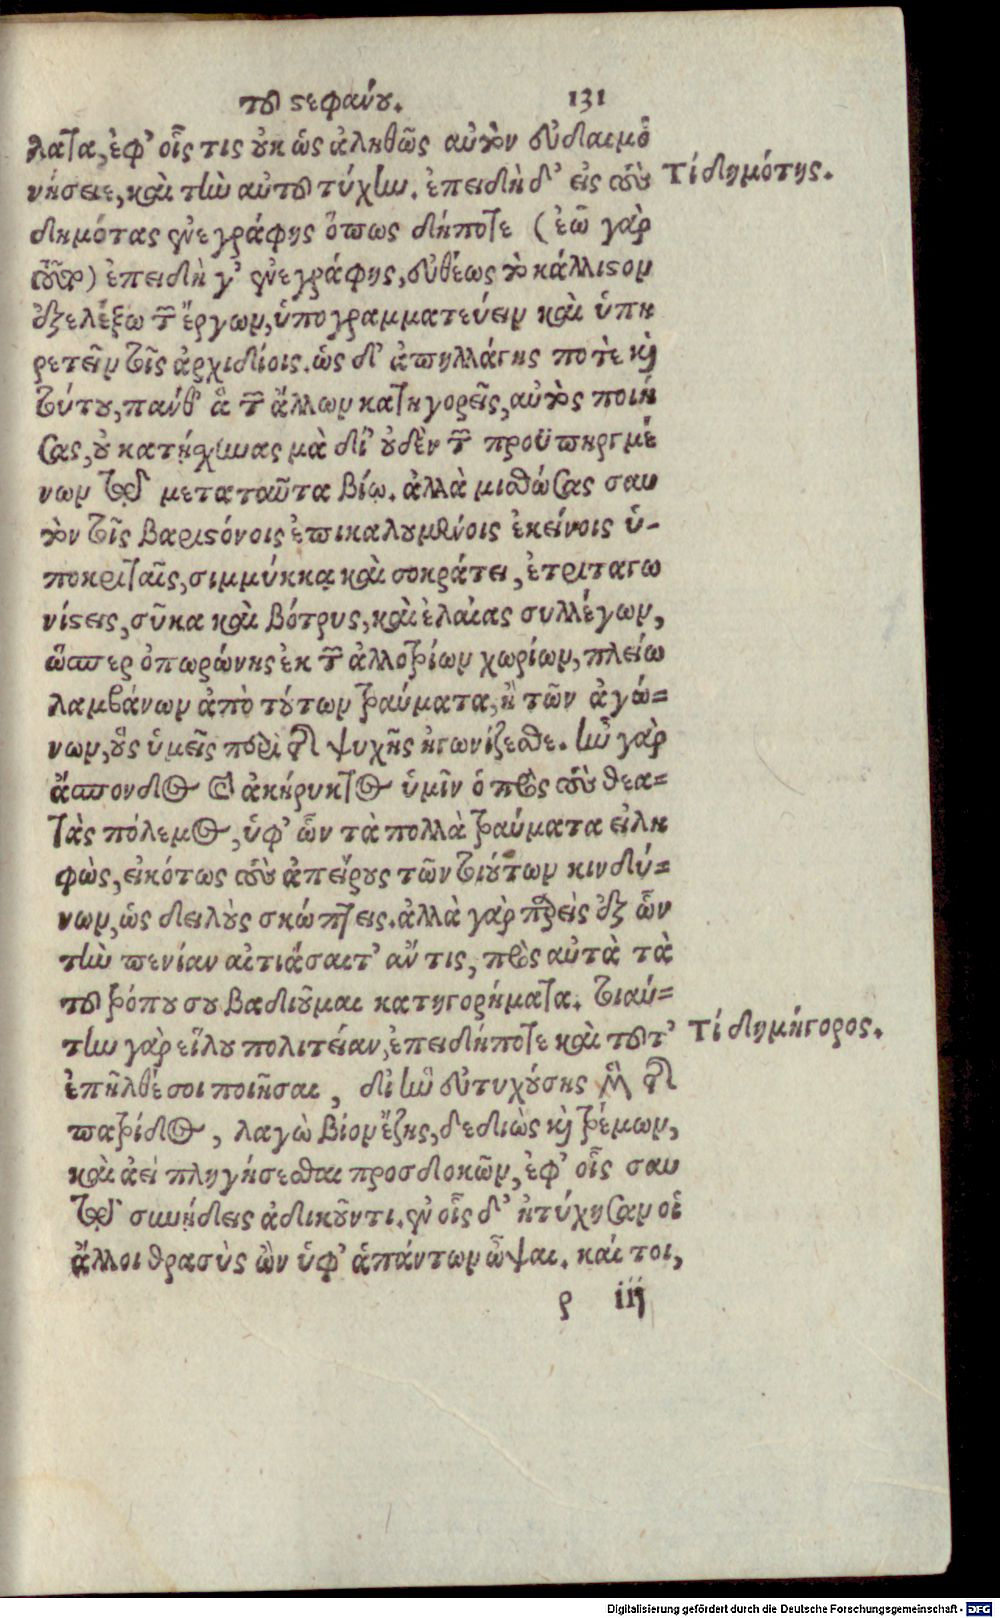 τοῦ στεφάνου. 131
λατα, ἐφ' οἷς τις οὐκ ὡς ἀληθῶς αὐτὸν εὐδαιμο
νήσειε, καὶ τὴν αὐτοῦ τύχην. ἐπειδὴ δ' εἰς τοὺς Τί δημότης.
δημότας ἐνεγράφης ὅπως δήποτε (ἐῶ γὰρ
τοῦτο) ἐπειδὴ γ' ἐνεγράφης, εὐθέως τὸ κάλλιστον
ἐξελέξω τῶν ἔργων, ὑπογραμματεύειν καὶ ὑπη
ρετεῖν τοῖς ἀρχιδίοις. ὡς δ' ἀπηλλάγης ποτὲ καὶ
τούτου, πάνθ' ἃ τῶν ἄλλων κατηγορεῖς, αὐτὸς ποιή
σας, οὐ κατῄσχυνας μὰ δί' οὐδὲν τῶν προϋπηργμέ
νων τῷ μεταταῦτα βίῳ. ἀλλὰ μισθώσας σαυ
τὸν τοῖς βαρυστόνοις ἐπικαλουμένοις ἐκείνοις ὑ-
ποκριταῖς, σιμμύκκᾳ καὶ σοκράτει, ἐτριταγω
νίστεις, σῦκα καὶ βότρυς, καὶ ἐλαίας συλλέγων,
ὥσπερ ὀπωρώνης ἐκ τῶν ἀλλοτρίων χωρίων, πλείω
λαμβάνων ἀπὸ τούτων τραύματα, ἢ τῶν ἀγώ=
νων, οὓς ὑμεῖς περὶ τῆς ψυχῆς ἠγωνίζεσθε. ἦν γὰρ
ἄσπονδος καὶ ἀκήρυκτος ὑμῖν ὁ πρὸς τοὺς θεα=
τὰς πόλεμος, ὑφ' ὧν τὰ πολλὰ τραύματα εἰλη
φὼς, εἰκότως τοὺς ἀπείρους τῶν τοιούτων κινδύ=
νων, ὡς δειλοὺς σκώπτεις. ἀλλὰ γὰρ παρεὶς ἐξ ὧν
τὴν πενίαν αἰτιάσαιτ' ἄν τις, πρὸς αὐτὰ τὰ
τοῦ τρόπου σου βαδιοῦμαι κατηγορήματα. τοιαύ=
την γὰρ εἵλου πολιτείαν, ἐπειδήποτε καὶ τοῦτ' Τί δημήγορος.
ἐπῆλθέ σοι ποιῆσαι, δι' ἣν εὐτυχούσης μὲν τῆς
πατρίδος, λαγὼ βίον ἔζης, δεδιὼς καὶ τρέμων,
καὶ ἀεὶ πληγήσεσθαι προσδοκῶν, ἐφ' οἷς σαυ
τῷ συνῄδεις ἀδικοῦντι. ἐν οἷς δ' ἠτύχησαν οἱ
ἄλλοι θρασὺς ὢν ὑφ' ἁπάντων ὦψαι. καί τοι,
ρ iij
Digitalisierung gefördert durch die Deutsche Forschungsgemeinschaft - DFG